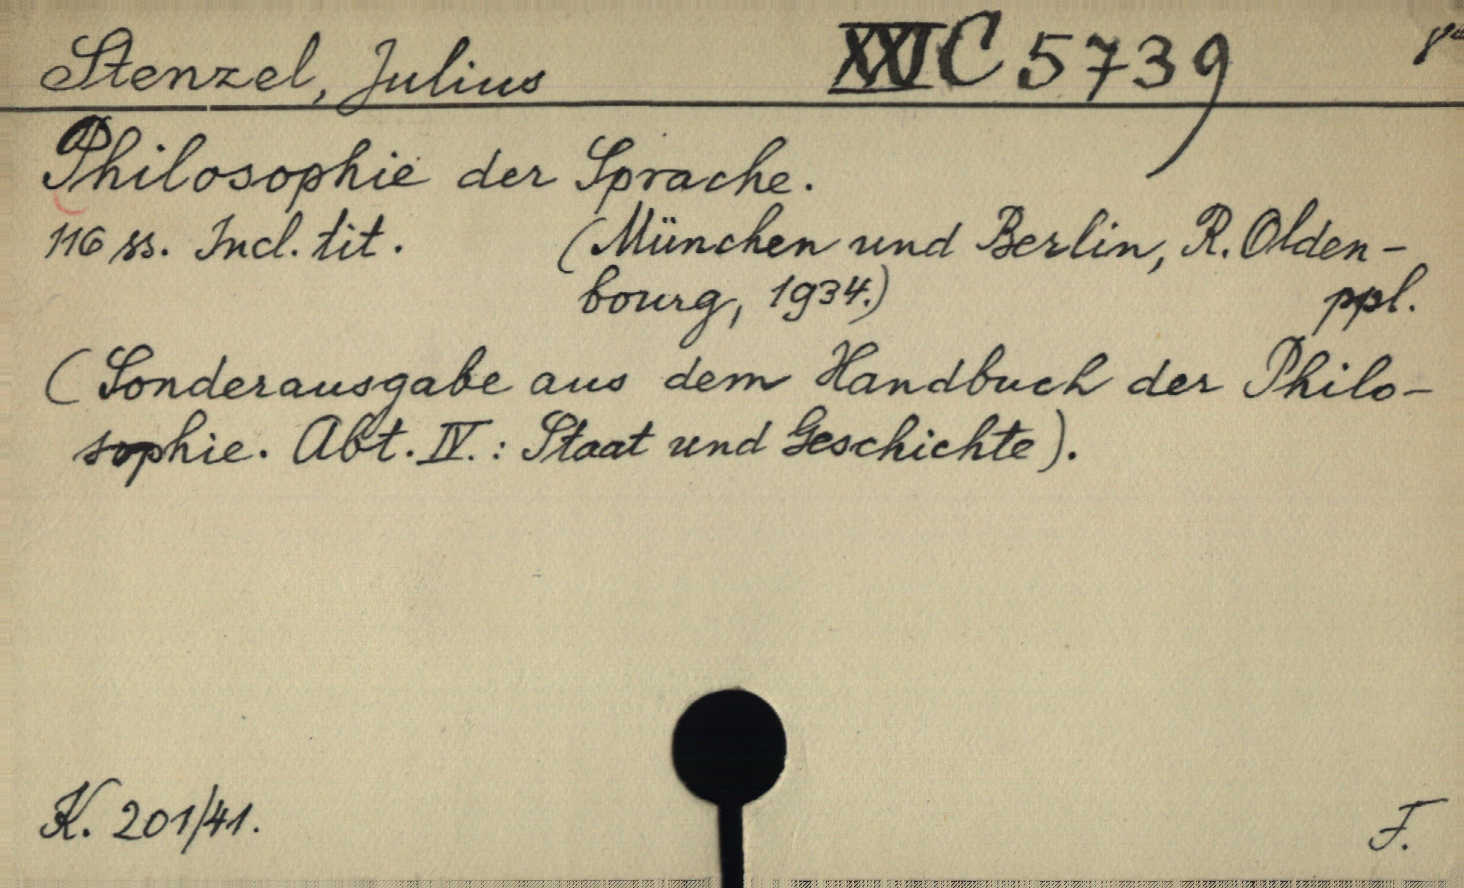 Stenzel, Julius XXI C 5739 8°
Philosophie der Sprache.
116 ss. Incl. tit. (München und Berlin, R. Olden-
bourg, 1934.) ppl.
(Sonderausgabe aus dem Handbuch der Philo-
sophie. Abt. IV.: Staat und Geschichte).
K. 201/41. F.